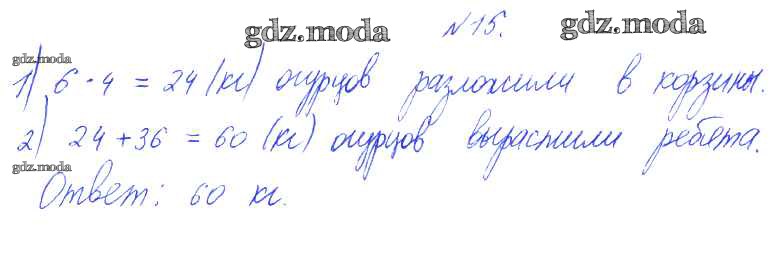 gdz.moda №15. gdz.moda
gdz.moda
1) 6 · 4 = 24 (кг) огурцов разложили в корзины.
2) 24 + 36 = 60 (кг) огурцов вырастили ребята.
gdz.moda
Ответ: 60 кг.